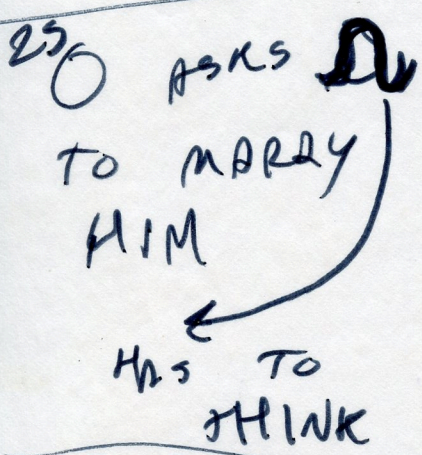 25 O ASKS
TO MARRY
HIM
HAS TO
THINK